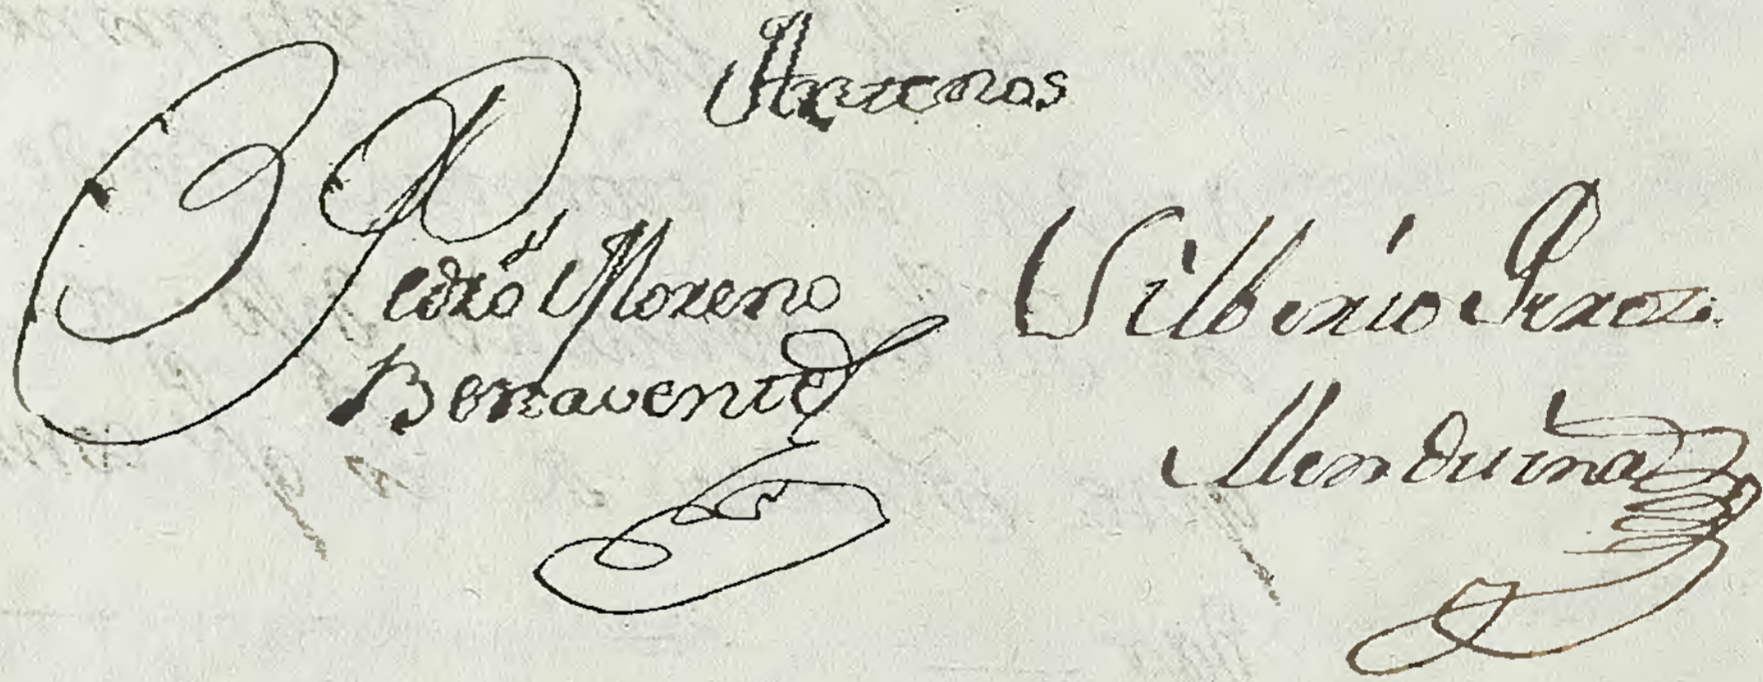 Pedro Moreno
Benavente
Silberio Perez
Menduiña